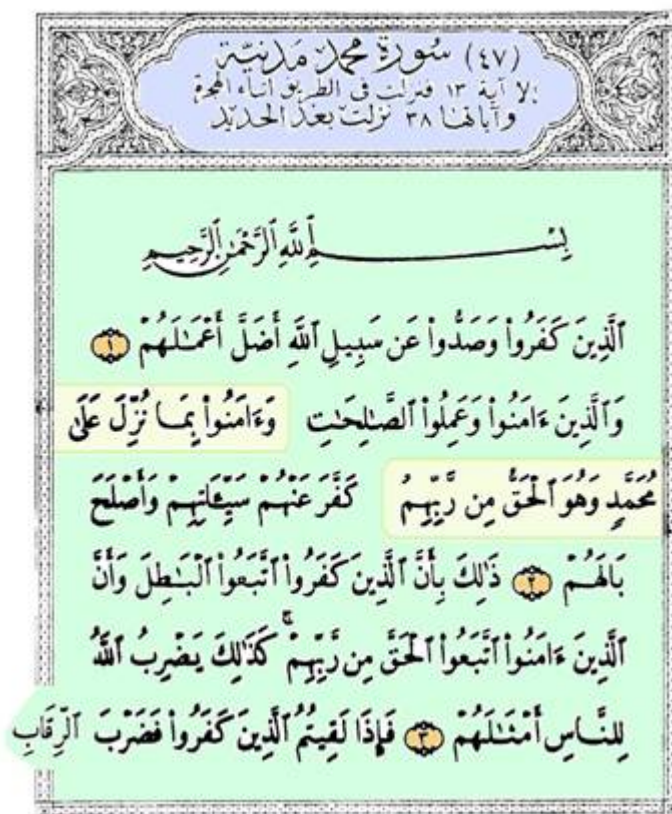 (٤٧) سُورَة محمد مَدَنيّة
إلا آية ١٣ فنزلت في الطريق أثناء الهجرة
وآياتها ٣٨ نزلت بعد الحديد
بِسْمِ ٱللَّهِ ٱلرَّحْمَٰنِ ٱلرَّحِيمِ
ٱلَّذِينَ كَفَرُوا۟ وَصَدُّوا۟ عَن سَبِيلِ ٱللَّهِ أَضَلَّ أَعْمَٰلَهُمْ ١
وَٱلَّذِينَ ءَامَنُوا۟ وَعَمِلُوا۟ ٱلصَّٰلِحَٰتِ وَءَامَنُوا۟ بِمَا نُزِّلَ عَلَىٰ
مُحَمَّدٍ وَهُوَ ٱلْحَقُّ مِن رَّبِّهِمْ كَفَّرَ عَنْهُمْ سَيِّـَٔاتِهِمْ وَأَصْلَحَ
بَالَهُمْ ٢ ذَٰلِكَ بِأَنَّ ٱلَّذِينَ كَفَرُوا۟ ٱتَّبَعُوا۟ ٱلْبَٰطِلَ وَأَنَّ
ٱلَّذِينَ ءَامَنُوا۟ ٱتَّبَعُوا۟ ٱلْحَقَّ مِن رَّبِّهِمْ ۚ كَذَٰلِكَ يَضْرِبُ ٱللَّهُ
لِلنَّاسِ أَمْثَٰلَهُمْ ٣ فَإِذَا لَقِيتُمُ ٱلَّذِينَ كَفَرُوا۟ فَضَرْبَ ٱلرِّقَابِ